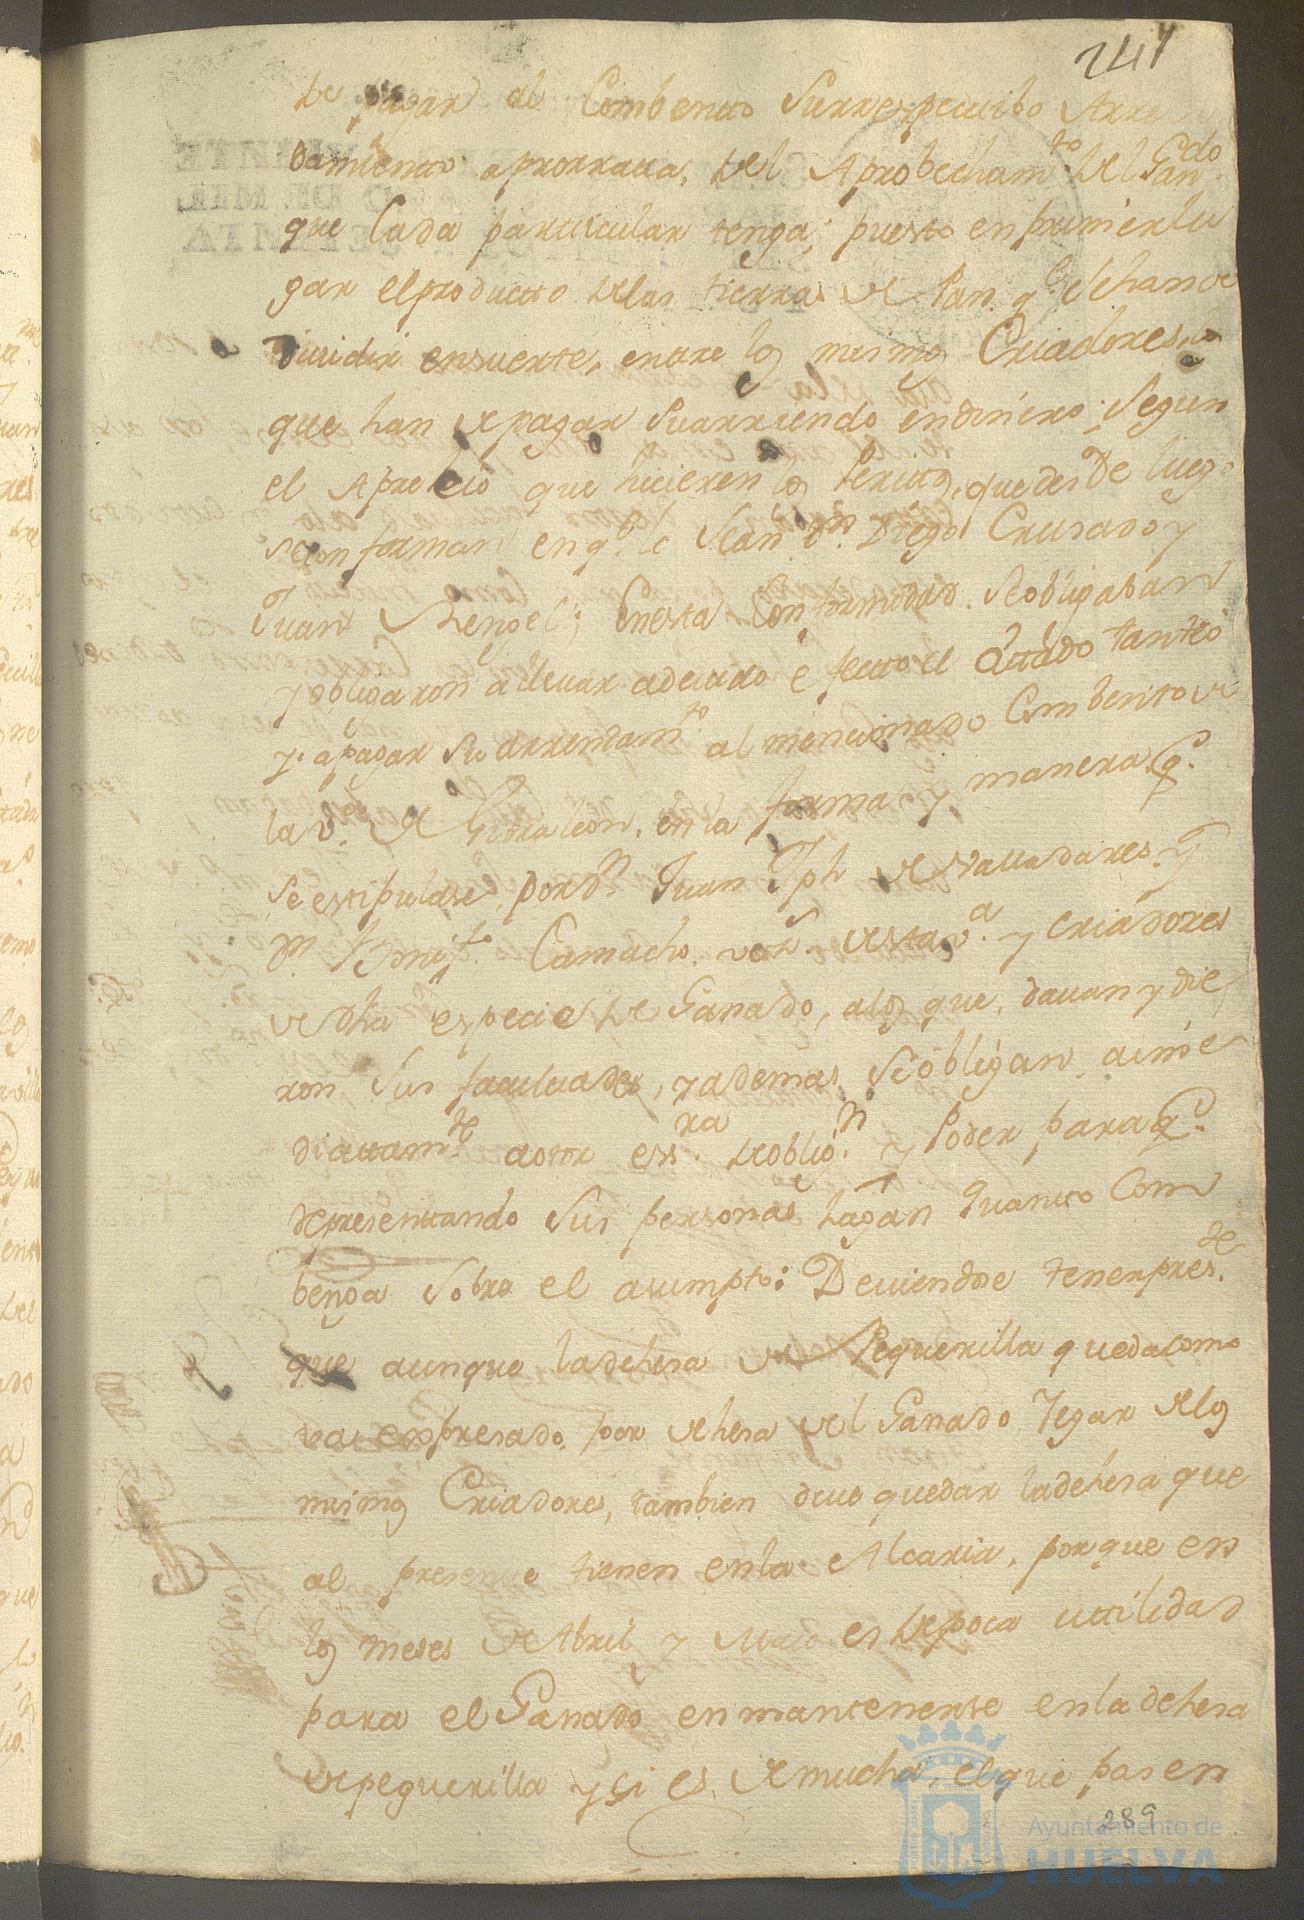 241
de pagar al Combento Su rrespectibo Arren
damiento a prorrata, del Aprobecham.to del Gan.do
que Cada particular tenga; puesto en primer lu
gar el producto de las tierras de Pan q.e se han de
dividir en suerte, entre los mismos Criadores, lo
que han de pagar Su arriendo en dinero; Segun
el Aprecio que hicieren los Peritos, que desde luego
se conforman en q.e lo Sean D.n Diego Crusado y
Juan Rengel; En esta Conformidad Se obligaban
y obligaron a llevar a devido efecto el Citado tanteo
y a pagar Su arrendam.to al mencionado Combento de
la V.a de Gibraleon, en la forma y manera q.e
Se estipulase, por D.n Juan Jph de Valladares y
D.n Bonif.o Camacho vez.s de esta V.a y criadores
de dha especie de Ganado, a los que davan y die
ron Sus facultades, y ademas Se obligan a inme
diattam.te a otor ess.ra de oblig.n y Poder para q.e
representando Sus personas hagan quanto Com
benga Sobre el asumpto: Deviendose tener pres.te
que aunque la dehesa de Peguerilla queda como
va expresado, por dehesa del Ganado Yegar de los
mismos Criadores, tambien deve quedar la dehesa que
al presente tienen en la Alcaria, porque en
los meses de Abril y Maio es de poca utilidad
para el Ganado en mantenerse en la dehesa
de peguerilla y si es de mucha, el que pasen
289
Ayuntamiento de
HUELVA